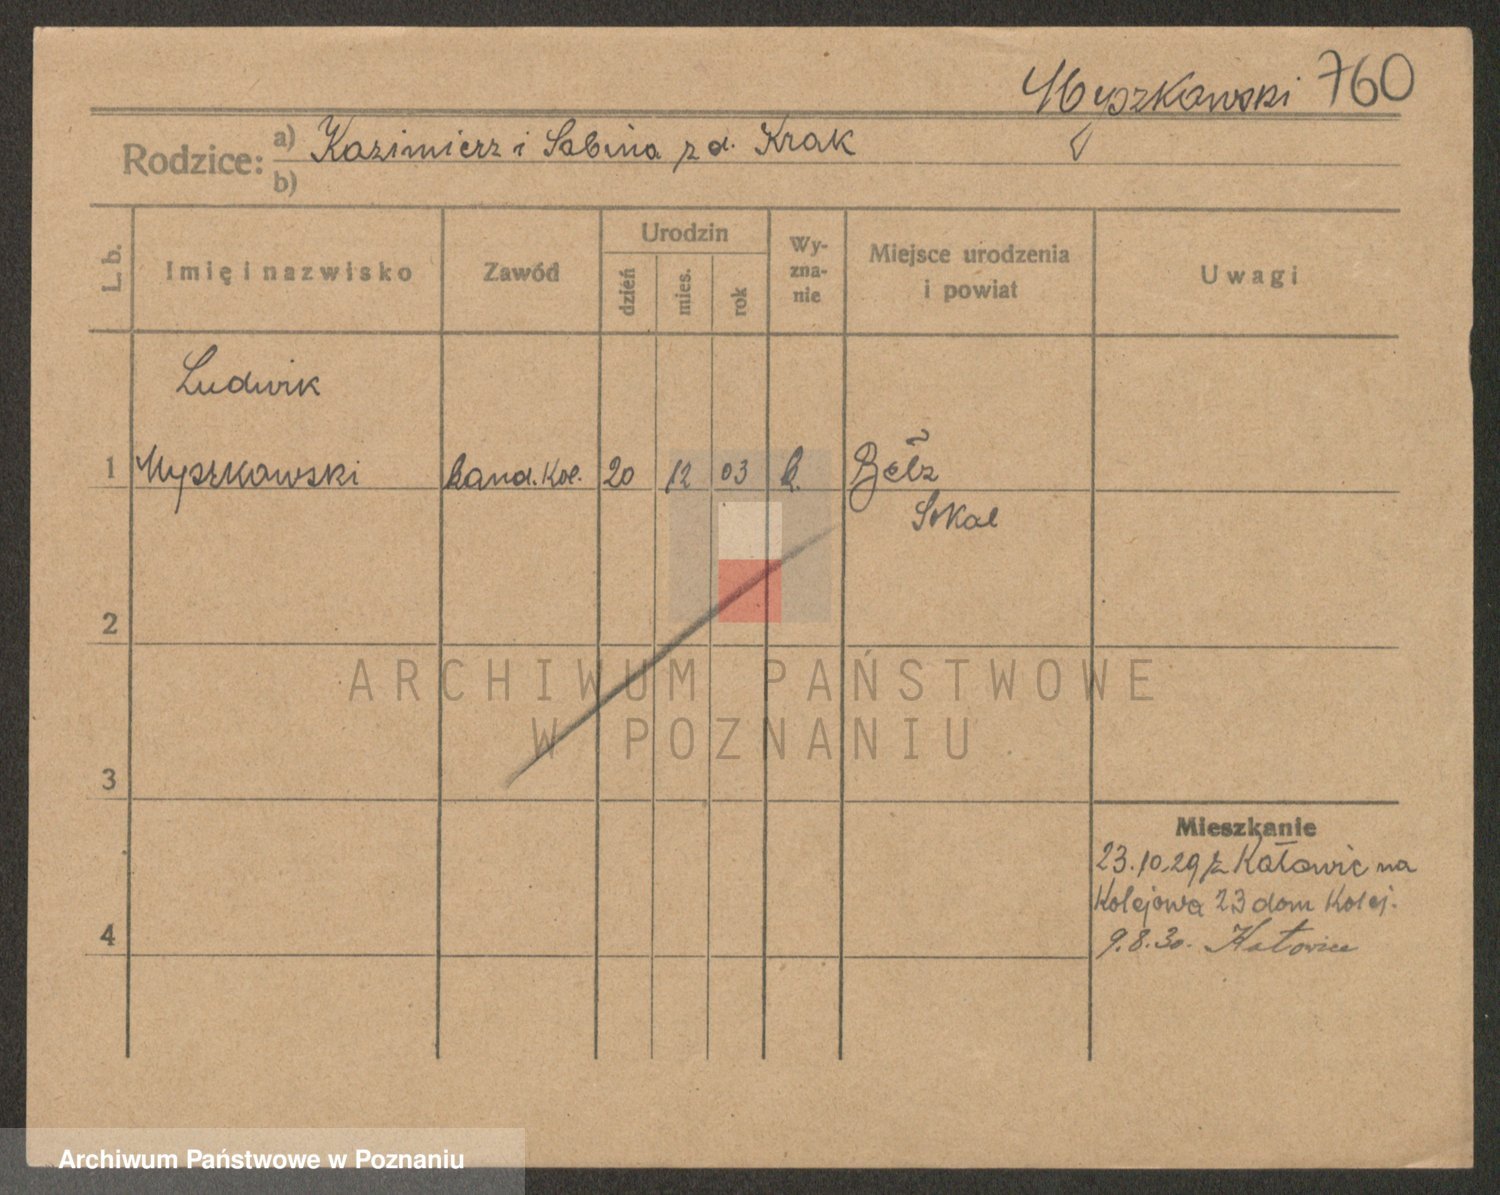 Myszkowski 760
Rodzice: a) Kazimierz i Sabina z d. Krak
b)
L. b.
Imię i nazwisko
Zawód
Urodzin
dzień
mies.
rok
Wy-
zna-
nie
Miejsce urodzenia
i powiat
Uwagi
Ludwik
1 Myszkowski kand. kol. 20 12 03 k. Bełz
Sokal
2
3
4
Mieszkanie
23.10.29 z Katowic na
Kolejowa 23 dom Kolej.
9.8.30. Katowice
ARCHIWUM PAŃSTWOWE
W POZNANIU
Archiwum Państwowe w Poznaniu